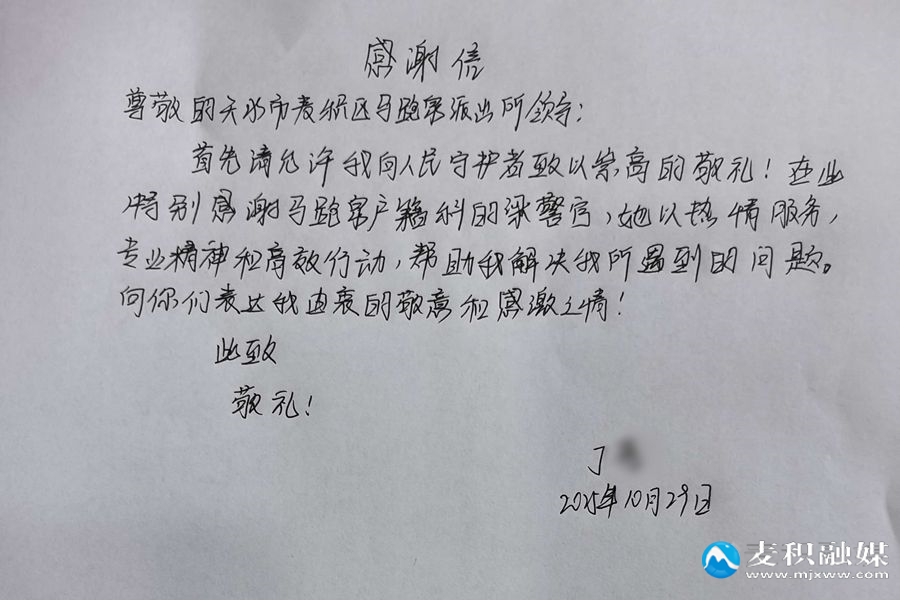 感谢信
尊敬的天水市麦积区马跑泉派出所领导：
首先请允许我向人民守护者致以崇高的敬礼！在此
特别感谢马跑泉户籍科的梁警官，她以热情服务，
专业精神和高效行动，帮助我解决我所遇到的问题。
向你们表达我由衷的敬意和感激之情！
此致
敬礼！
丁
2025年10月29日
麦积融媒
www.mjxww.com